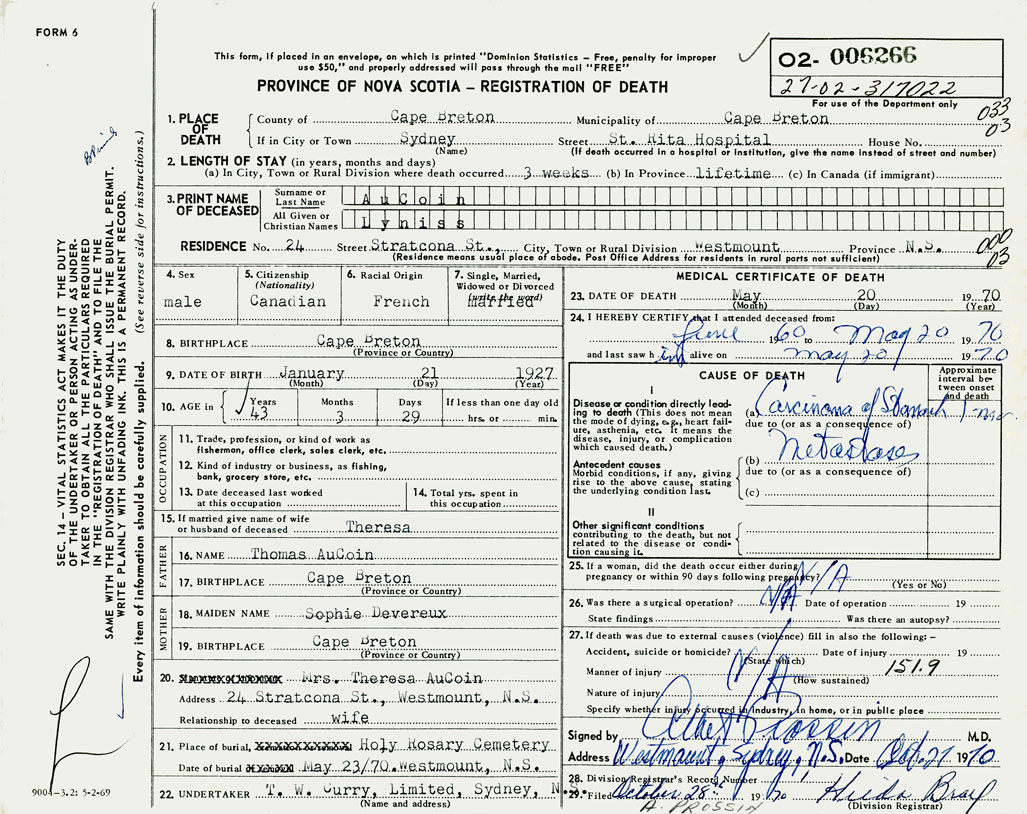 FORM 6
This form, if placed in an envelope, on which is printed "Dominion Statistics – Free, penalty for improper
use $50," and properly addressed will pass through the mail "FREE"
PROVINCE OF NOVA SCOTIA – REGISTRATION OF DEATH
02- 006266
27-02-317022
For use of the Department only
033
03
1. PLACE OF DEATH
County of Cape Breton Municipality of Cape Breton
If in City or Town Sydney Street St. Rita Hospital House No.
(Name) (If death occurred in a hospital or institution, give the name instead of street and number)
2. LENGTH OF STAY (in years, months and days)
(a) In City, Town or Rural Division where death occurred 3 weeks (b) In Province lifetime (c) In Canada (if immigrant)
3. PRINT NAME OF DECEASED
Surname or Last Name AuCoin
All Given or Christian Names Lyniss
RESIDENCE No. 24 Street Stratcona St., City, Town or Rural Division Westmount Province N.S.
(Residence means usual place of abode. Post Office Address for residents in rural parts not sufficient)
000
03
4. Sex
male
5. Citizenship
(Nationality)
Canadian
6. Racial Origin
French
7. Single, Married, Widowed or Divorced
(write the word)
Married
8. BIRTHPLACE Cape Breton
(Province or Country)
9. DATE OF BIRTH January 21 1927
(Month) (Day) (Year)
10. AGE in Years Months Days If less than one day old
43 3 29 hrs. or min.
OCCUPATION
11. Trade, profession, or kind of work as
fisherman, office clerk, sales clerk, etc.
12. Kind of industry or business, as fishing,
bank, grocery store, etc.
13. Date deceased last worked
at this occupation
14. Total yrs. spent in
this occupation
15. If married give name of wife
or husband of deceased Theresa
FATHER
16. NAME Thomas AuCoin
17. BIRTHPLACE Cape Breton
(Province or Country)
MOTHER
18. MAIDEN NAME Sophie Devereux
19. BIRTHPLACE Cape Breton
(Province or Country)
20. Mrs. Theresa AuCoin
Address 24 Stratcona St., Westmount, N.S.
Relationship to deceased wife
21. Place of burial, Holy Rosary Cemetery
Date of burial May 23/70. Westmount, N.S.
22. UNDERTAKER T. W. Curry, Limited, Sydney, N
(Name and address)
MEDICAL CERTIFICATE OF DEATH
23. DATE OF DEATH May 20 1970
(Month) (Day) (Year)
24. I HEREBY CERTIFY that I attended deceased from:
June 1960 to May 20 1970
and last saw him alive on May 20/ 1970
CAUSE OF DEATH
Approximate interval between onset and death
I
Disease or condition directly leading to death (This does not
mean the mode of dying, e.g., heart failure, asthenia, etc. It means the
disease, injury, or complication
which caused death.)
(a) Carcinoma of Stomach
due to (or as a consequence of)
Antecedent causes
Morbid conditions, if any, giving
rise to the above cause, stating
the underlying condition last.
(b) Metastases
due to (or as a consequence of)
(c)
II
Other significant conditions
contributing to the death, but not
related to the disease or condition
causing it.
25. If a woman, did the death occur either during
pregnancy or within 90 days following pregnancy? N/A
(Yes or No)
26. Was there a surgical operation? N/A Date of operation 19
State findings Was there an autopsy?
27. If death was due to external causes (violence) fill in also the following: –
Accident, suicide or homicide? Date of injury 19
(State which)
Manner of injury N/A 151.9
(How sustained)
Nature of injury
Specify whether injury occurred in industry, in home, or in public place
Signed by Prossin M.D.
Address Westmount, Sydney, N.S. Date Oct. 27 1970
28. Division Registrar's Record Number
29. Filed October 28th 1970 Hilda Bray
(Division Registrar)
A. PROSSIN
SEC. 14 – VITAL STATISTICS ACT MAKES IT THE DUTY
OF THE UNDERTAKER OR PERSON ACTING AS UNDER-
TAKER TO OBTAIN ALL THE PARTICULARS REQUIRED
IN THE "REGISTRATION OF DEATH" AND TO FILE THE
SAME WITH THE DIVISION REGISTRAR WHO SHALL ISSUE THE BURIAL PERMIT.
WRITE PLAINLY WITH UNFADING INK. THIS IS A PERMANENT RECORD.
Every item of information should be carefully supplied. (See reverse side for instructions.)
9004–3.2: 5-2-69